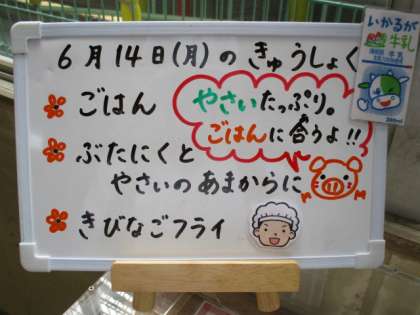 6月14日(月)のきゅうしょく
ごはん
やさいたっぷり。
ごはんに合うよ!!
ぶたにくと
やさいのあまからに
きびなごフライ
いかるが
牛乳
200ml